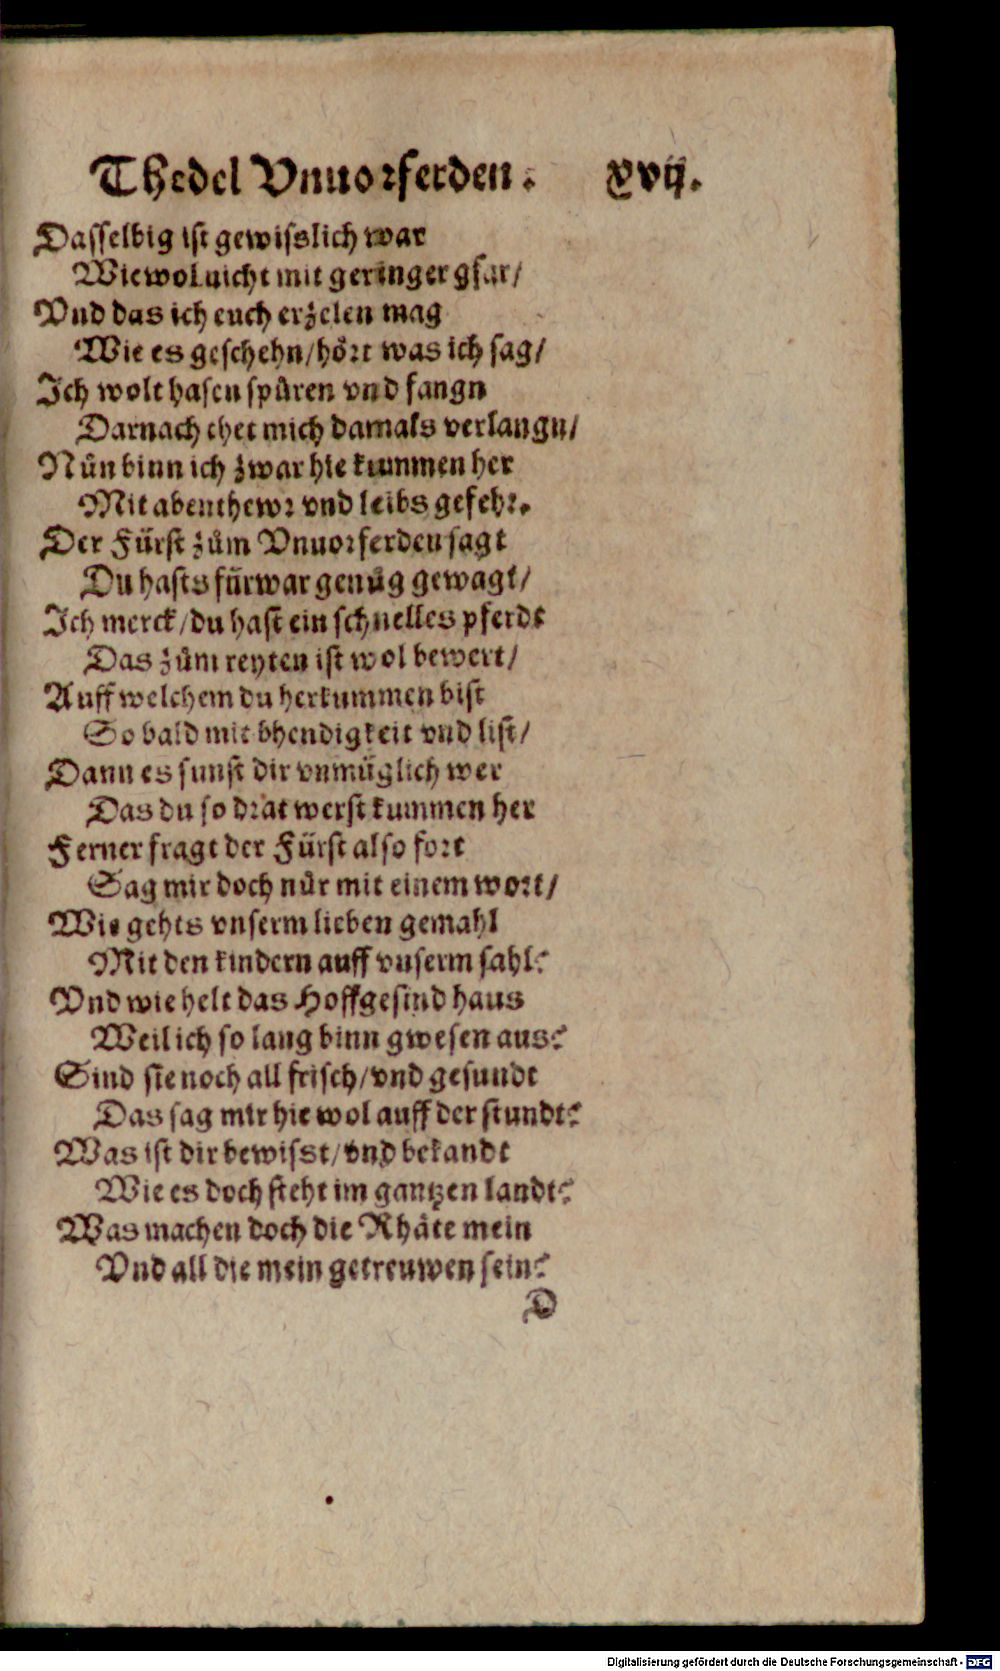 Thedel Vnuorferden. xvij.
Dasselbig ist gewisslich war
Wiewol nicht mit geringer gfar/
Vnd das ich euch erzelen mag
Wie es geschehn/hört was ich sag/
Ich wolt hasen spüren vnd fangn
Darnach thet mich damals verlangn/
Nůn binn ich zwar hie kummen her
Mit abenthewr vnd leibs gefehr.
Der Fürst zům Vnuorferden sagt
Du hasts fürwar genůg gewagt/
Ich merck/du hast ein schnelles pferdt
Das zům reyten ist wol bewert/
Auff welchem du herkummen bist
So bald mit bhendigkeit vnd list/
Dann es sunst dir vnmüglich wer
Das du so drat werst kummen her
Ferner fragt der Fürst also fort
Sag mir doch nůr mit einem wort/
Wie gehts vnserm lieben gemahl
Mit den kindern auff vnserm sahl?
Vnd wie helt das Hoffgesind haus
Weil ich so lang binn gwesen aus?
Sind sie noch all frisch/vnd gesundt
Das sag mir hie wol auff der stundt?
Was ist dir bewisst/vnd bekandt
Wie es doch steht im gantzen landt?
Was machen doch die Rhäte mein
Vnd all die mein getreuwen sein?
D
Digitalisierung gefördert durch die Deutsche Forschungsgemeinschaft - DFG